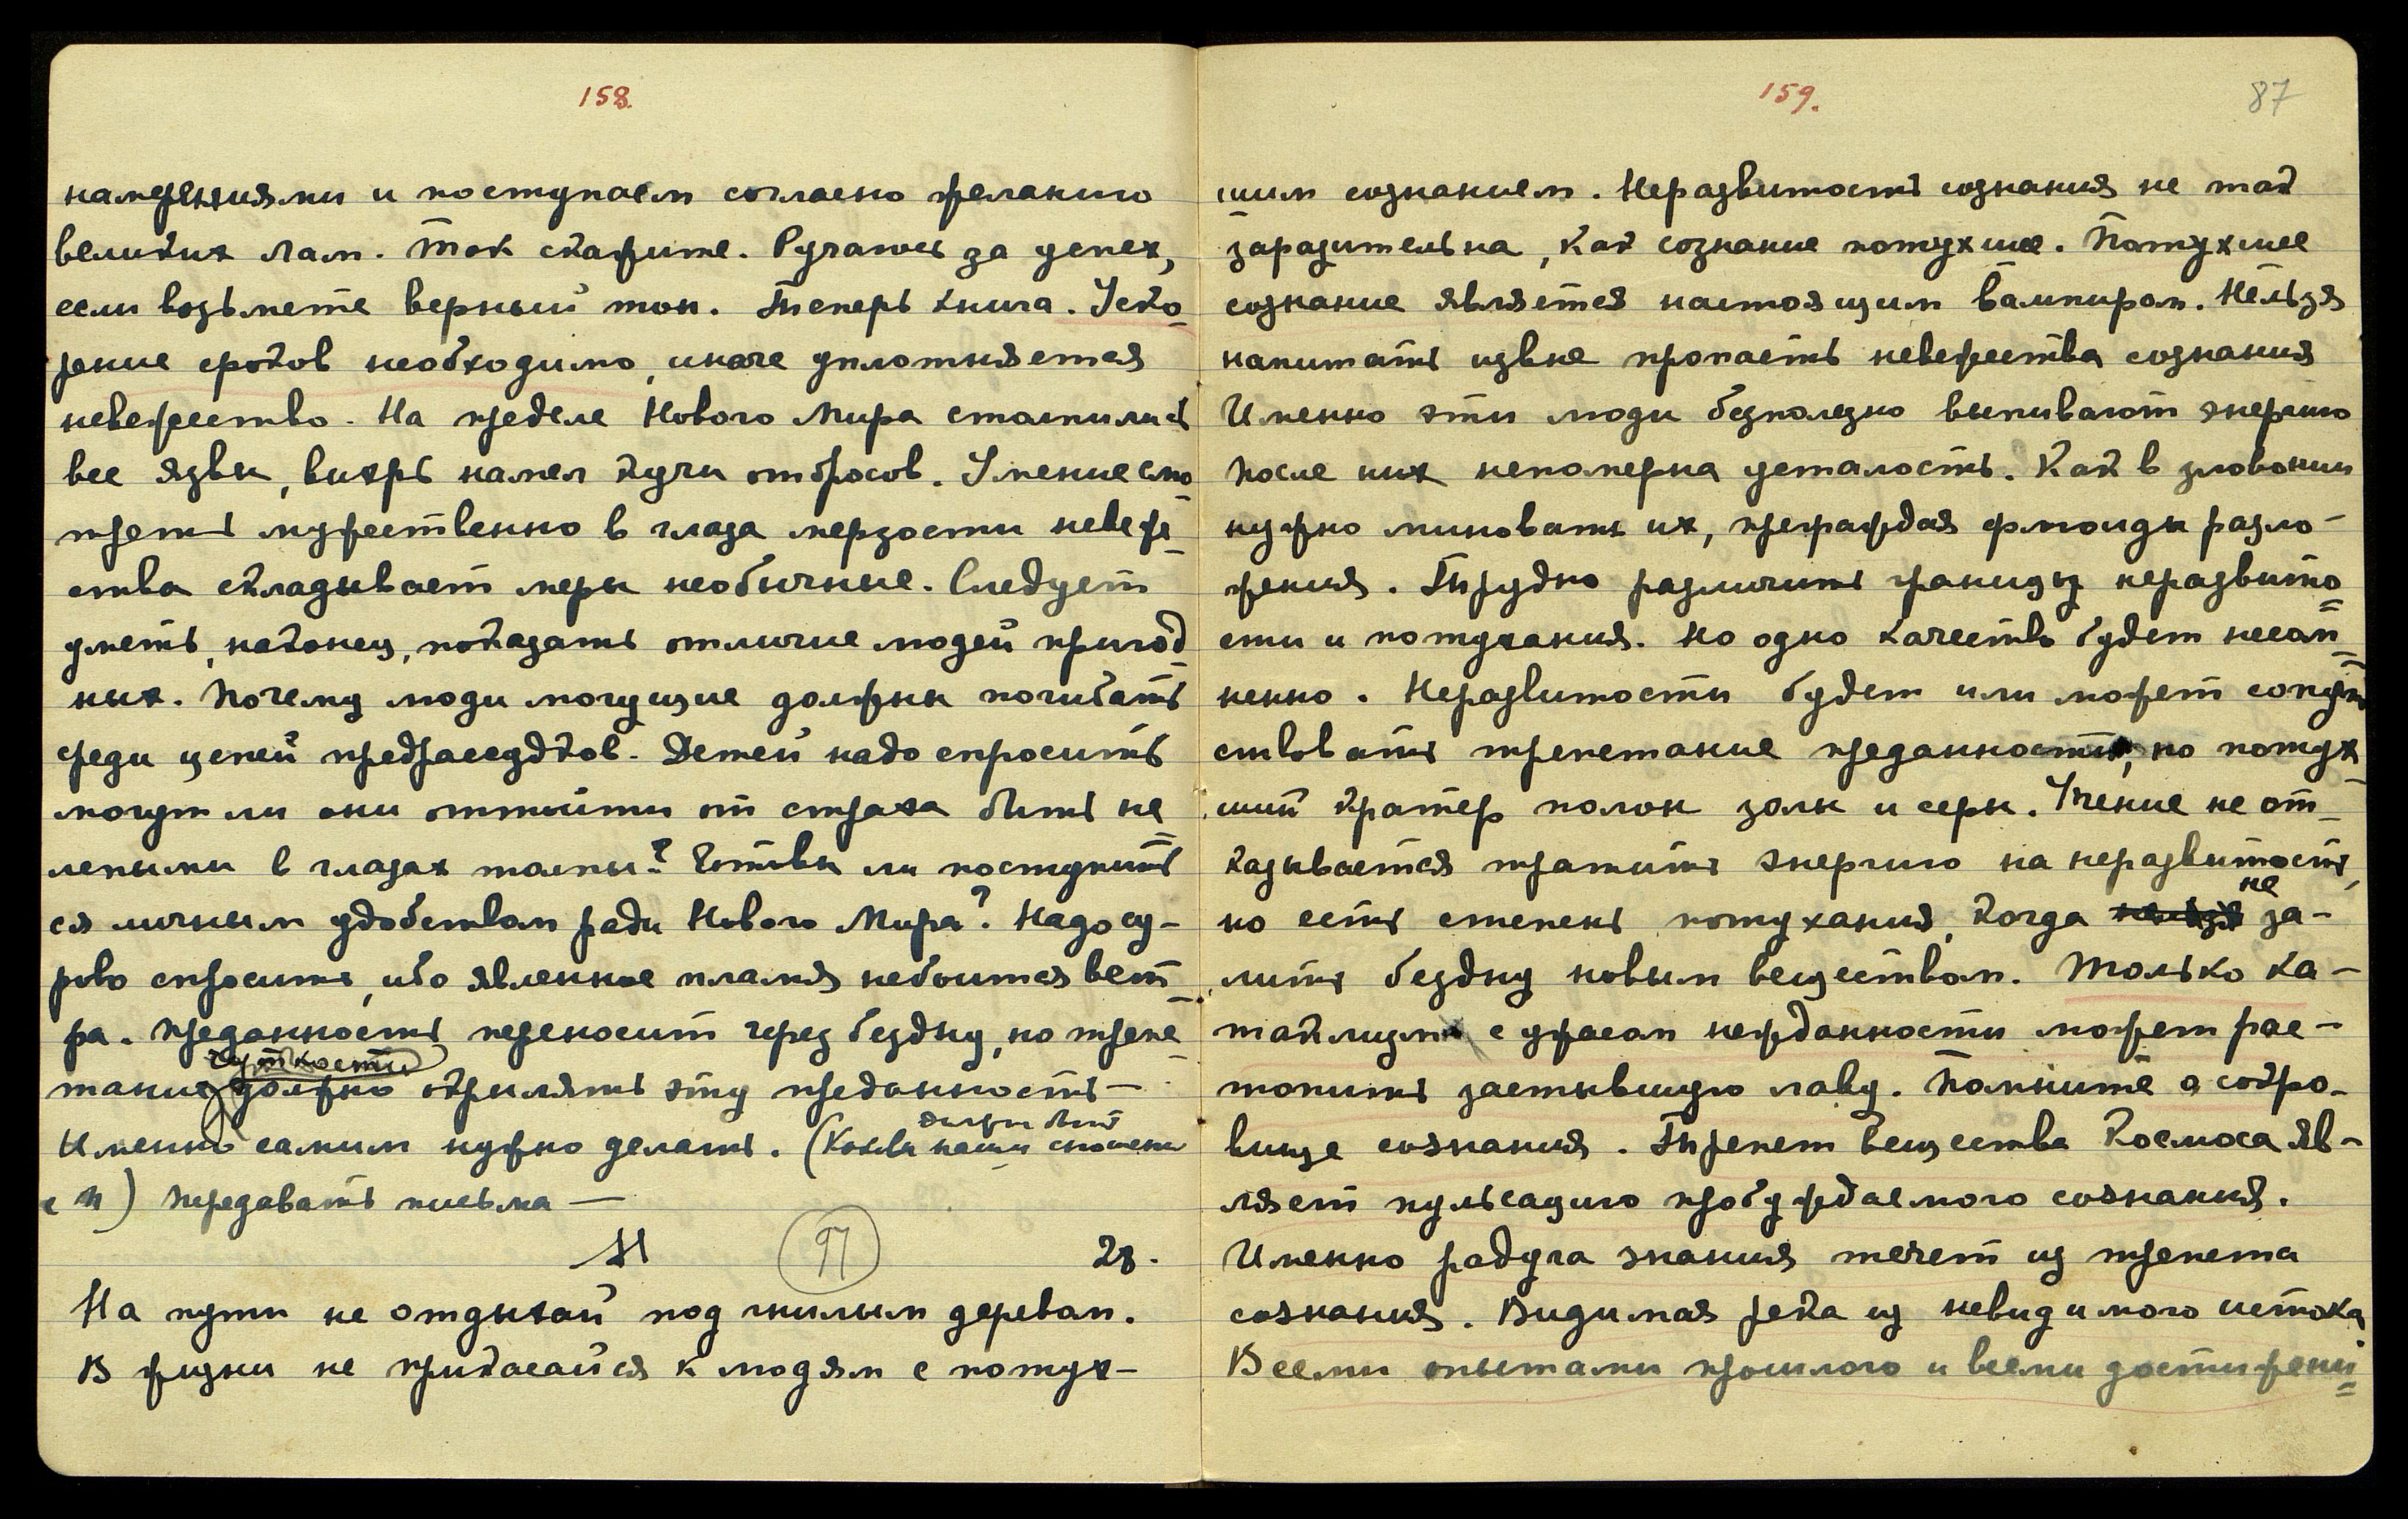 158.
намерениями и поступаем согласно желанию
великих лам. Так скажите. Ручаюсь за успех,
если возьмете верный тон. Теперь книга. Уско-
рение сроков необходимо, иначе уплотняется
невежество. На пределе Нового Мира столпились
все язвы, вихрь намел кучи отбросов. Умение смо-
треть мужественно в глаза мерзости невеже-
ства складывает меры необычные. Следует
уметь, наконец, показать отличие людей пригод-
ных. Почему люди могущие должны погибать
среди цепей предрассудков. Детей надо спросить
могут ли они отойти от страха быть не
лепыми в глазах толпы? Готовы ли поступить
ся личным удобством ради Нового Мира? Надо су-
рово спросить, ибо явленное пламя небоится вет-
ра. Преданность переносит через бездну, но трепе-
чуткости
тание должно окрылять эту преданность —
Именно самим нужно делать.
с М) передавать письма —
М 97 28.
На пути не отдыхай под гнилым деревом.
В жизни не прикасайся к людям с потух-
159.
87
шим сознанием. Неразвитость сознания не так
заразительна, как сознание потухшее. Потухшее
сознание является настоящим вампиром. Нельзя
напитать извне пропасть невежества сознания
Именно эти люди безполезно выпивают энергию
После них непомерна усталость. Как в зловонии
нужно миновать их, преграждая флюиды разло-
жения. Трудно различить границу неразвито-
сти и потухания. Но одно качество будет несом-
ненно. Неразвитости будет или может сопут-
ствовать трепетание преданности, но потух-
ший кратер полон золы и серы. Учение не от-
казывается тратить энергию на неразвитость,
не
но есть степень потухания, когда нельзя за-
лить бездну новым веществом. Только ка-
таклизм с ужасом нежданности может рас-
топить застывшую лаву. Помните о сокро-
вище сознания. Трепет вещества Космоса яв-
ляет пульсацию пробуждаемого сознания.
Именно радуга знания течет из трепета
сознания. Видимая река из невидимого истока.
Всеми опытами прошлого и всеми достижени-